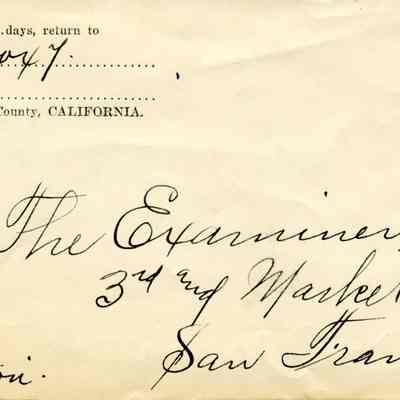 days, return to
County, CALIFORNIA.
The Examiner,
3rd and Market
San Fran